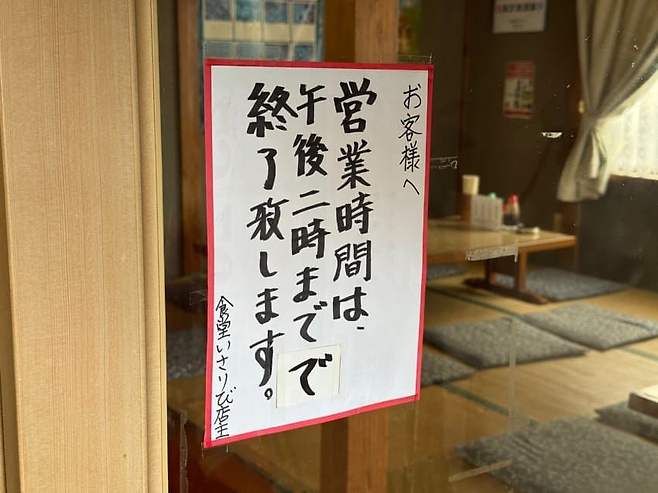 お客様へ
営業時間は、
午後二時までで
終了致します。
食堂いさりび店主